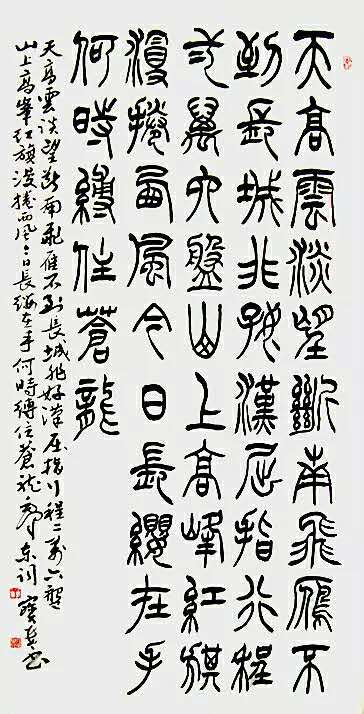 天高雲淡望斷南飛雁不
到長城非好漢屈指行程
弍萬六盤山上高峰紅旗
漫捲西風今日長纓在手
何時縛住蒼龍
天高雲淡望斷南飛雁不到長城非好漢屈指行程二萬六盤
山上高峯紅旗漫捲西風今日長纓在手何時縛住蒼龍 東詞 書